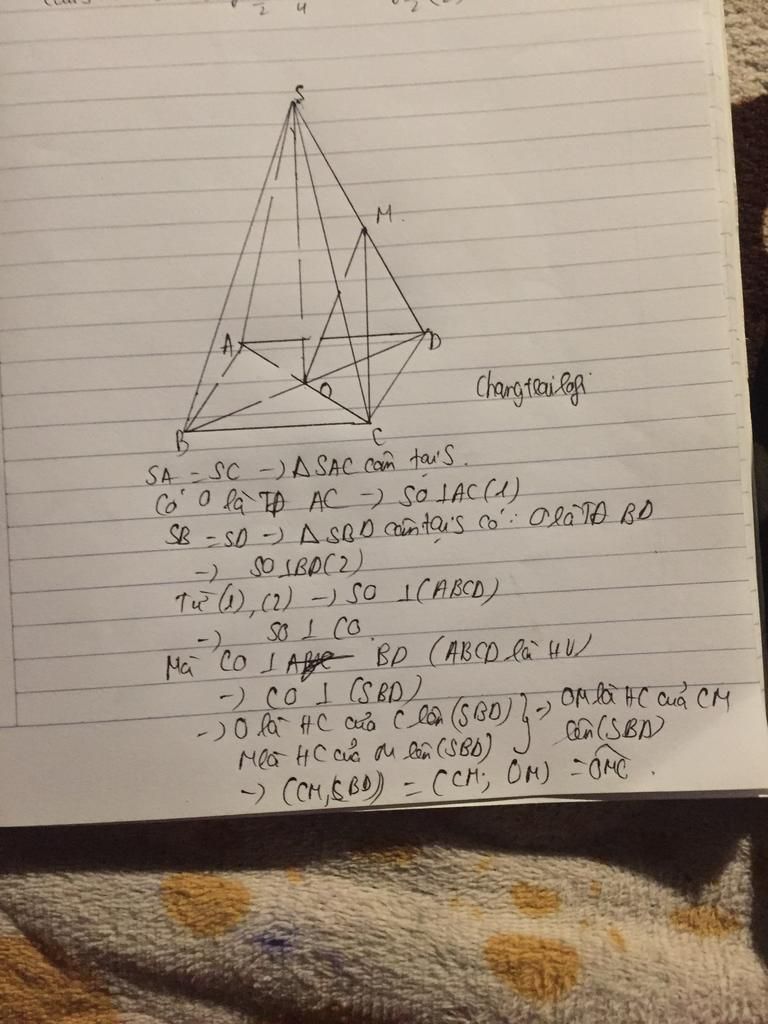 S
M
A
D
O
B
C
Changtrailofi
SA = SC → ΔSAC cân tại S.
Có O là TĐ AC → SO ⊥ AC (1)
SB = SD → ΔSBD cân tại S có: O là TĐ BD
→ SO ⊥ BD (2)
Từ (1), (2) → SO ⊥ (ABCD)
→ SO ⊥ CO.
Mà CO ⊥ BD (ABCD là HV)
→ CO ⊥ (SBD)
→ O là HC của C lên (SBD) } → OM là HC của CM
M là HC của M lên (SBD) lên (SBD)
→ (CM, SBD)) = (CM; OM) = OMC.